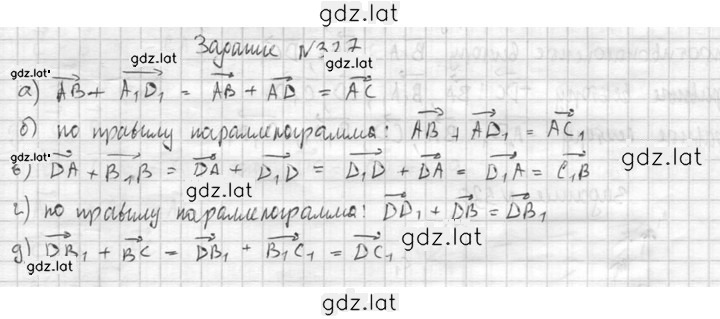 gdz.lat
Задание №327
gdz.lat
gdz.lat
а) AB + A₁D₁ = AB + AD = AC
gdz.lat
б) по правилу параллелограмма: AB + AD₁ = AC₁
gdz.lat
в) DA + B₁B = DA + D₁D = D₁D + DA = D₁A = C₁B
gdz.lat
gdz.lat
г) по правилу параллелограмма: DD₁ + DB = DB₁
gdz.lat
д) DB₁ + BC = DB₁ + B₁C₁ = DC₁
gdz.lat
gdz.lat